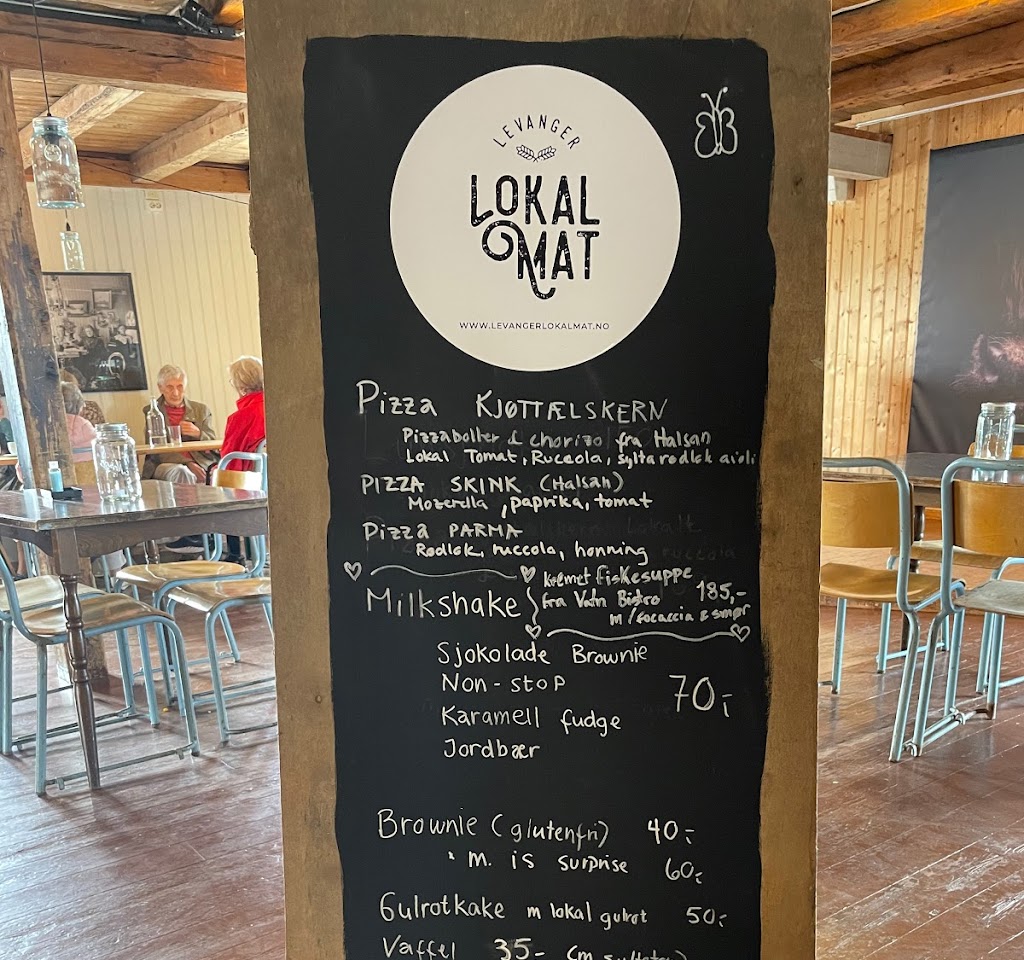 LEVANGER
LOKAL
MAT
WWW.LEVANGERLOKALMAT.NO
Pizza KJØTTÆLSKERN
Pizzaboller & chorizo fra Halsan
Lokal Tomat, Ruccola, sylta rødløk aioli
PIZZA SKINK (Halsan)
Mozerella, paprika, tomat
Pizza PARMA
Rødløk, ruccola, honning
kremet fiskesuppe
fra Vatn Bistro 185,-
m/focaccia & smør
Milkshake
Sjokolade Brownie
Non-stop 70,-
Karamell fudge
Jordbær
Brownie (glutenfri) 40,-
" m. is surprise 60,-
Gulrotkake m lokal gulrot 50,-
Vaffel 35-